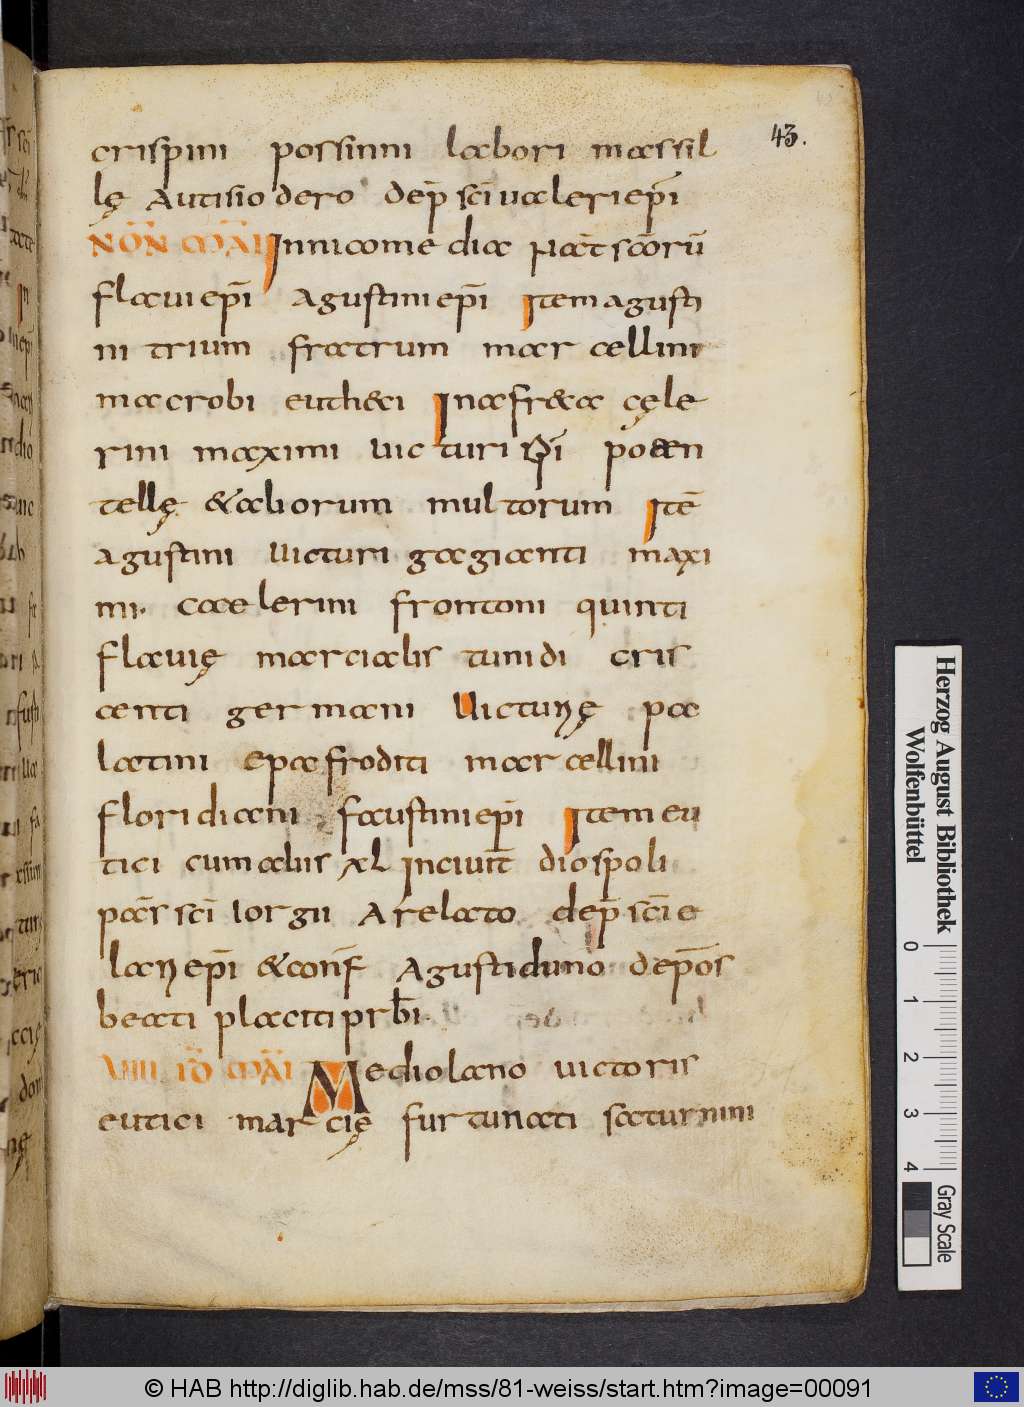 43.
crispini possinni labori massil
lę autisiodero dep̄ sc̄i ualeri ep̄i
NŌN MĀI In nicomedia pat̄ sc̄oru̅
flaui ep̄i agustini ep̄i Item agusti
ni trium fratrum marcellini
macrobi euth&ci In afr&a cęle
rini maximi uicturi poten
tellę &aliorum multorum Ite̅
agustini uicturi gagianti maxi
mi. caelerini frontoni quinti
flauię marcialis tunidi cris
centi germani Uicturę pa
latini epafroditi marcellini
floridiani faustini ep̄i Item eu
tici cum aliis xl In ciuit̄ diospoli
pas̄ sc̄i Iorgii Arelato dep̄ sc̄i e
lari ep̄i &conf̄ Agustiduno dep̄os
beati placiti prb̄i
VIII ID̄ MĀI Mediolano uictoris
eutici marcię furtunati saturnini
Herzog August Bibliothek
Wolfenbüttel
0 1 2 3 4
Gray Scale
© HAB http://diglib.hab.de/mss/81-weiss/start.htm?image=00091